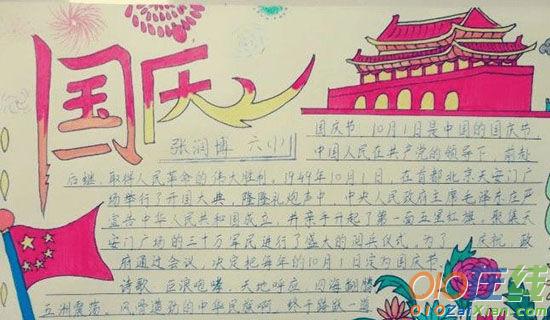 国庆
张润博 六（1）
国庆节，10月1日是中国的国庆节，
中国人民在共产党的领导下，前赴
后继，取得人民革命的伟大胜利，1949年10月1日，在首都北京天安门广
场举行了开国大典，隆隆礼炮声中，中央人民政府主席毛泽东庄严
宣告中华人民共和国成立，并亲手升起了第一面五星红旗，聚集天
安门广场的三十万军民进行了盛大的阅兵仪式，为了 庆祝，政
府通过会议，决定把每年的10月1日定为国庆节。
诗歌，巨浪咆哮，天地呼应，四海翻腾
五洲震荡，风雪遮勤的中华民族啊，终于踏跃一道
在线
ZaiXian.com